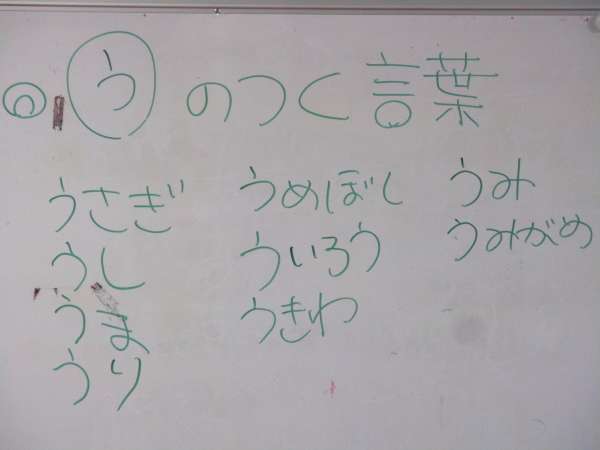 ◎ う のつく言葉
うさぎ
うし
うま
うり
うめぼし
ういろう
うきわ
うみ
うみがめ